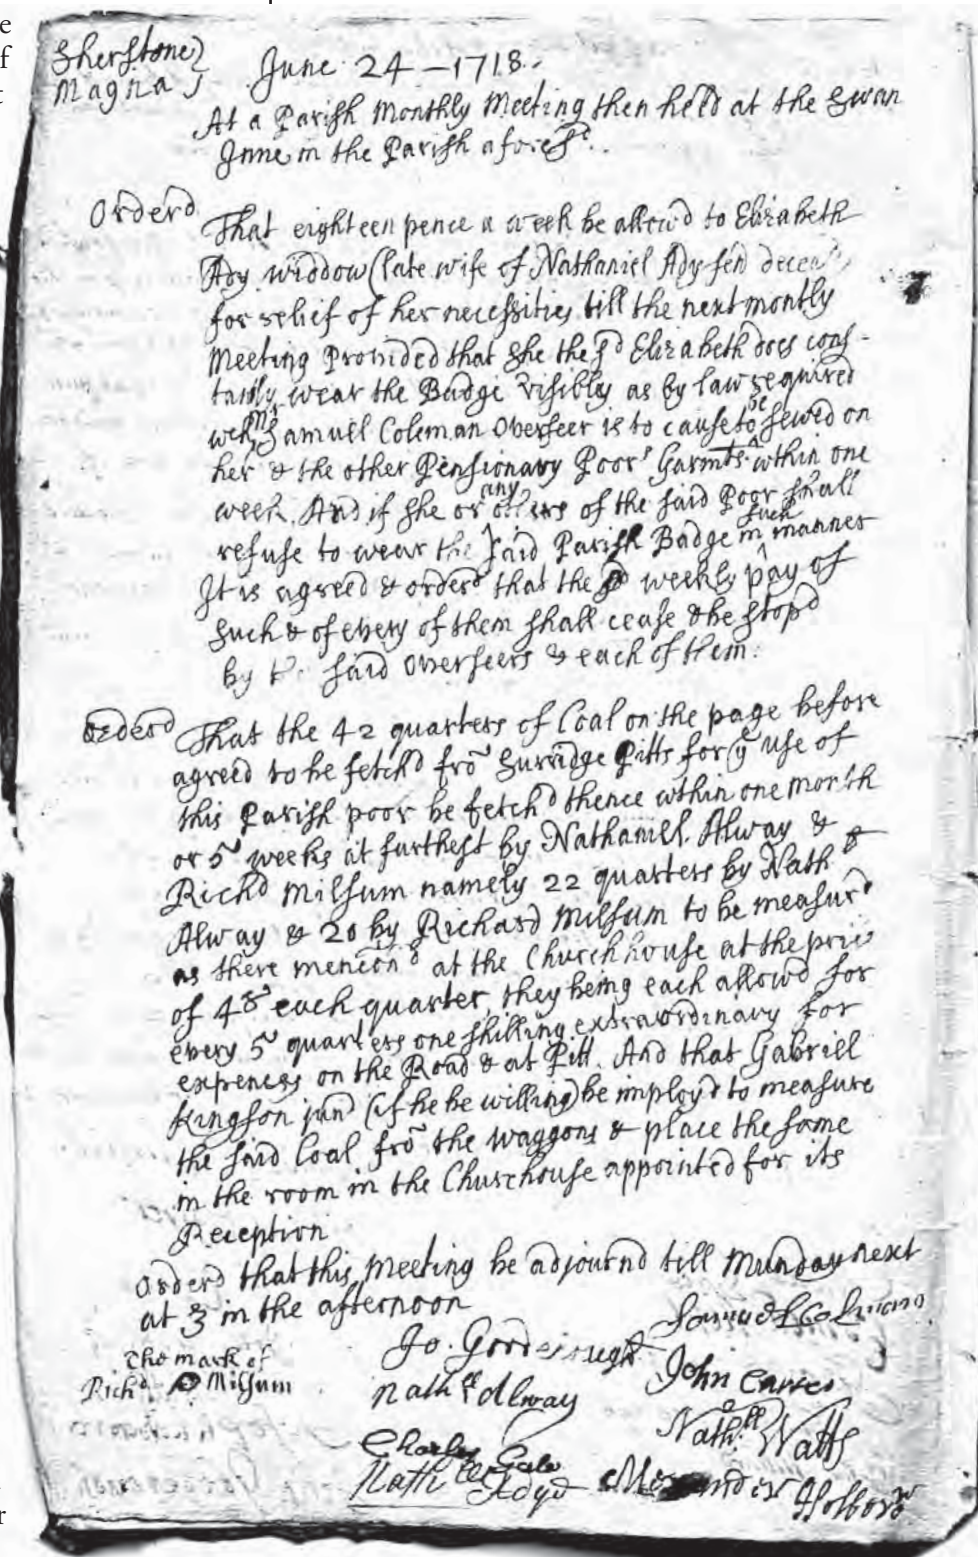 Sherstone
Magna
June 24 - 1718.
At a Parish Monthly Meeting then held at the Swan
Inne in the Parish aforesd.
Orderd
That eighteen pence a week be allowd to Elizabeth
Ady widdow (late wife of Nathaniel Ady sen deceasd
for relief of her necessities till the next montly
Meeting Provided that she the sd Elizabeth does cons-
tantly wear the Badge visibly as by law required
wch Mr Samuell Coleman Overseer is to cause to be sewed on
her & the other Pensionary Poors Garmts. within one
week. And if she or any others of the said Poor shall
refuse to wear the said Parish Badge in such manner
It is agreed & orderd that the weekly pay of
such & of every of them shall cease & be stopd
by ye. said overseers & each of them.
Orderd
That the 42 quarters of Coal on the page before
agreed to be fetchd frõ Surridge Pitts for ye use of
this Parish poor be fetchd thence within one month
or 5 weeks at furthest by Nathaniell Alway &
Richd Milsum namely 22 quarters by Nath
Alway & 20 by Richard Milsum to be measurd
as there menciõnd at the Churchhouse at the price
of 4s each quarter, they being each allowd for
every 5 quarters one shilling extraordinary for
expences on the Road & at Pitt. And that Gabriell
Kingson jund (if he be willing) be employd to measure
the said Coal frõ the waggons & place the same
in the room in the Churchouse appointed for its
Reception
Orderd that this Meeting be adjournd till Munday next
at 3 in the afternoon
The mark of
Richd Milsum
Jo. Goodenough
Nathll Alway
Charles Gale
Nathll Adye
Samuel Colmano
John Carter
Nathll Watts
Alexander Holborow